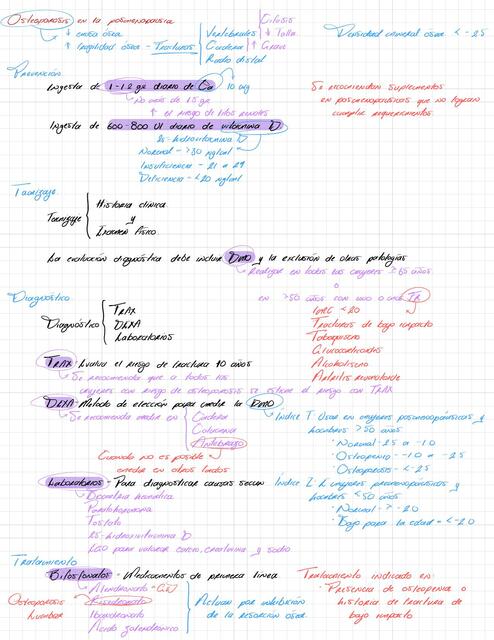 Osteoporosis en la posmenopausica
↓ masa ósea
↑ fragilidad ósea - Fracturas
Vertebrales
Cadera
Radio distal
Cifosis
↓ Talla
↑ Grave
Densidad mineral osea < -2.5
Prevención
Ingesta de 1-1.2 gr diario de Ca
No mas de 1.5 gr
↑ el riesgo de litos renales
Ingesta de 600-800 UI diario de vitamina D
25-hidroxivitamina D
Normal - >30 ng/ml
Insuficiencia - 21 a 29
Deficiencia - <20 ng/ml
Se recomiendan suplementos
en posmenopausicas que no logran
cumplir requerimientos
Tamizaje
Tamizaje
Historia clínica
y
Examen físico
La evaluación diagnóstica debe incluir DMO y la exclusión de otras patologías
Realizar en todas las mujeres ≥65 años
o
en >50 años con uno o mas FR
IMC <20
Fracturas de bajo impacto
Tabaquismo
Glucocorticoides
Alcoholismo
Artritis reumatoide
Diagnóstico
Diagnóstico
FRAX
DEXA
Laboratorios
FRAX: Evalua el riesgo de fractura 10 años
Se recomienda que a todas las
mujeres con riesgo de osteoporosis se estime el riesgo con FRAX
DEXA - Metodo de elección para medir la DMO
Se recomienda medir en
Cadera
Columna
Antebrazo
Cuando no es posible
medir en otros lados
Índice T: Usar en mujeres posmenopausicas y
hombres >50 años
· Normal -2.5 a -1.0
· Osteopenia - -1.0 a -2.5
· Osteoporosis - <-2.5
Índice Z: En mujeres premenopausicas y
hombres <50 años
· Normal - > -2.0
· Bajo para la edad - <-2.0
Laboratorios - Para diagnosticar causas secun
Biometria hematica
Paratohormona
Fosfato
25-hidroxivitamina D
EGO para valorar calcio, creatinina y sodio
Tratamiento
Bifosfonatos - Medicamentos de primera linea
Alendronato
Risedronato
Ibandronato
Acido zoledronico
Osteoporosis
lumbar
Actuan por inhibición
de la resorcion osea
Tratamiento indicado en:
· Presencia de osteopenia o
historia de fractura de
bajo impacto